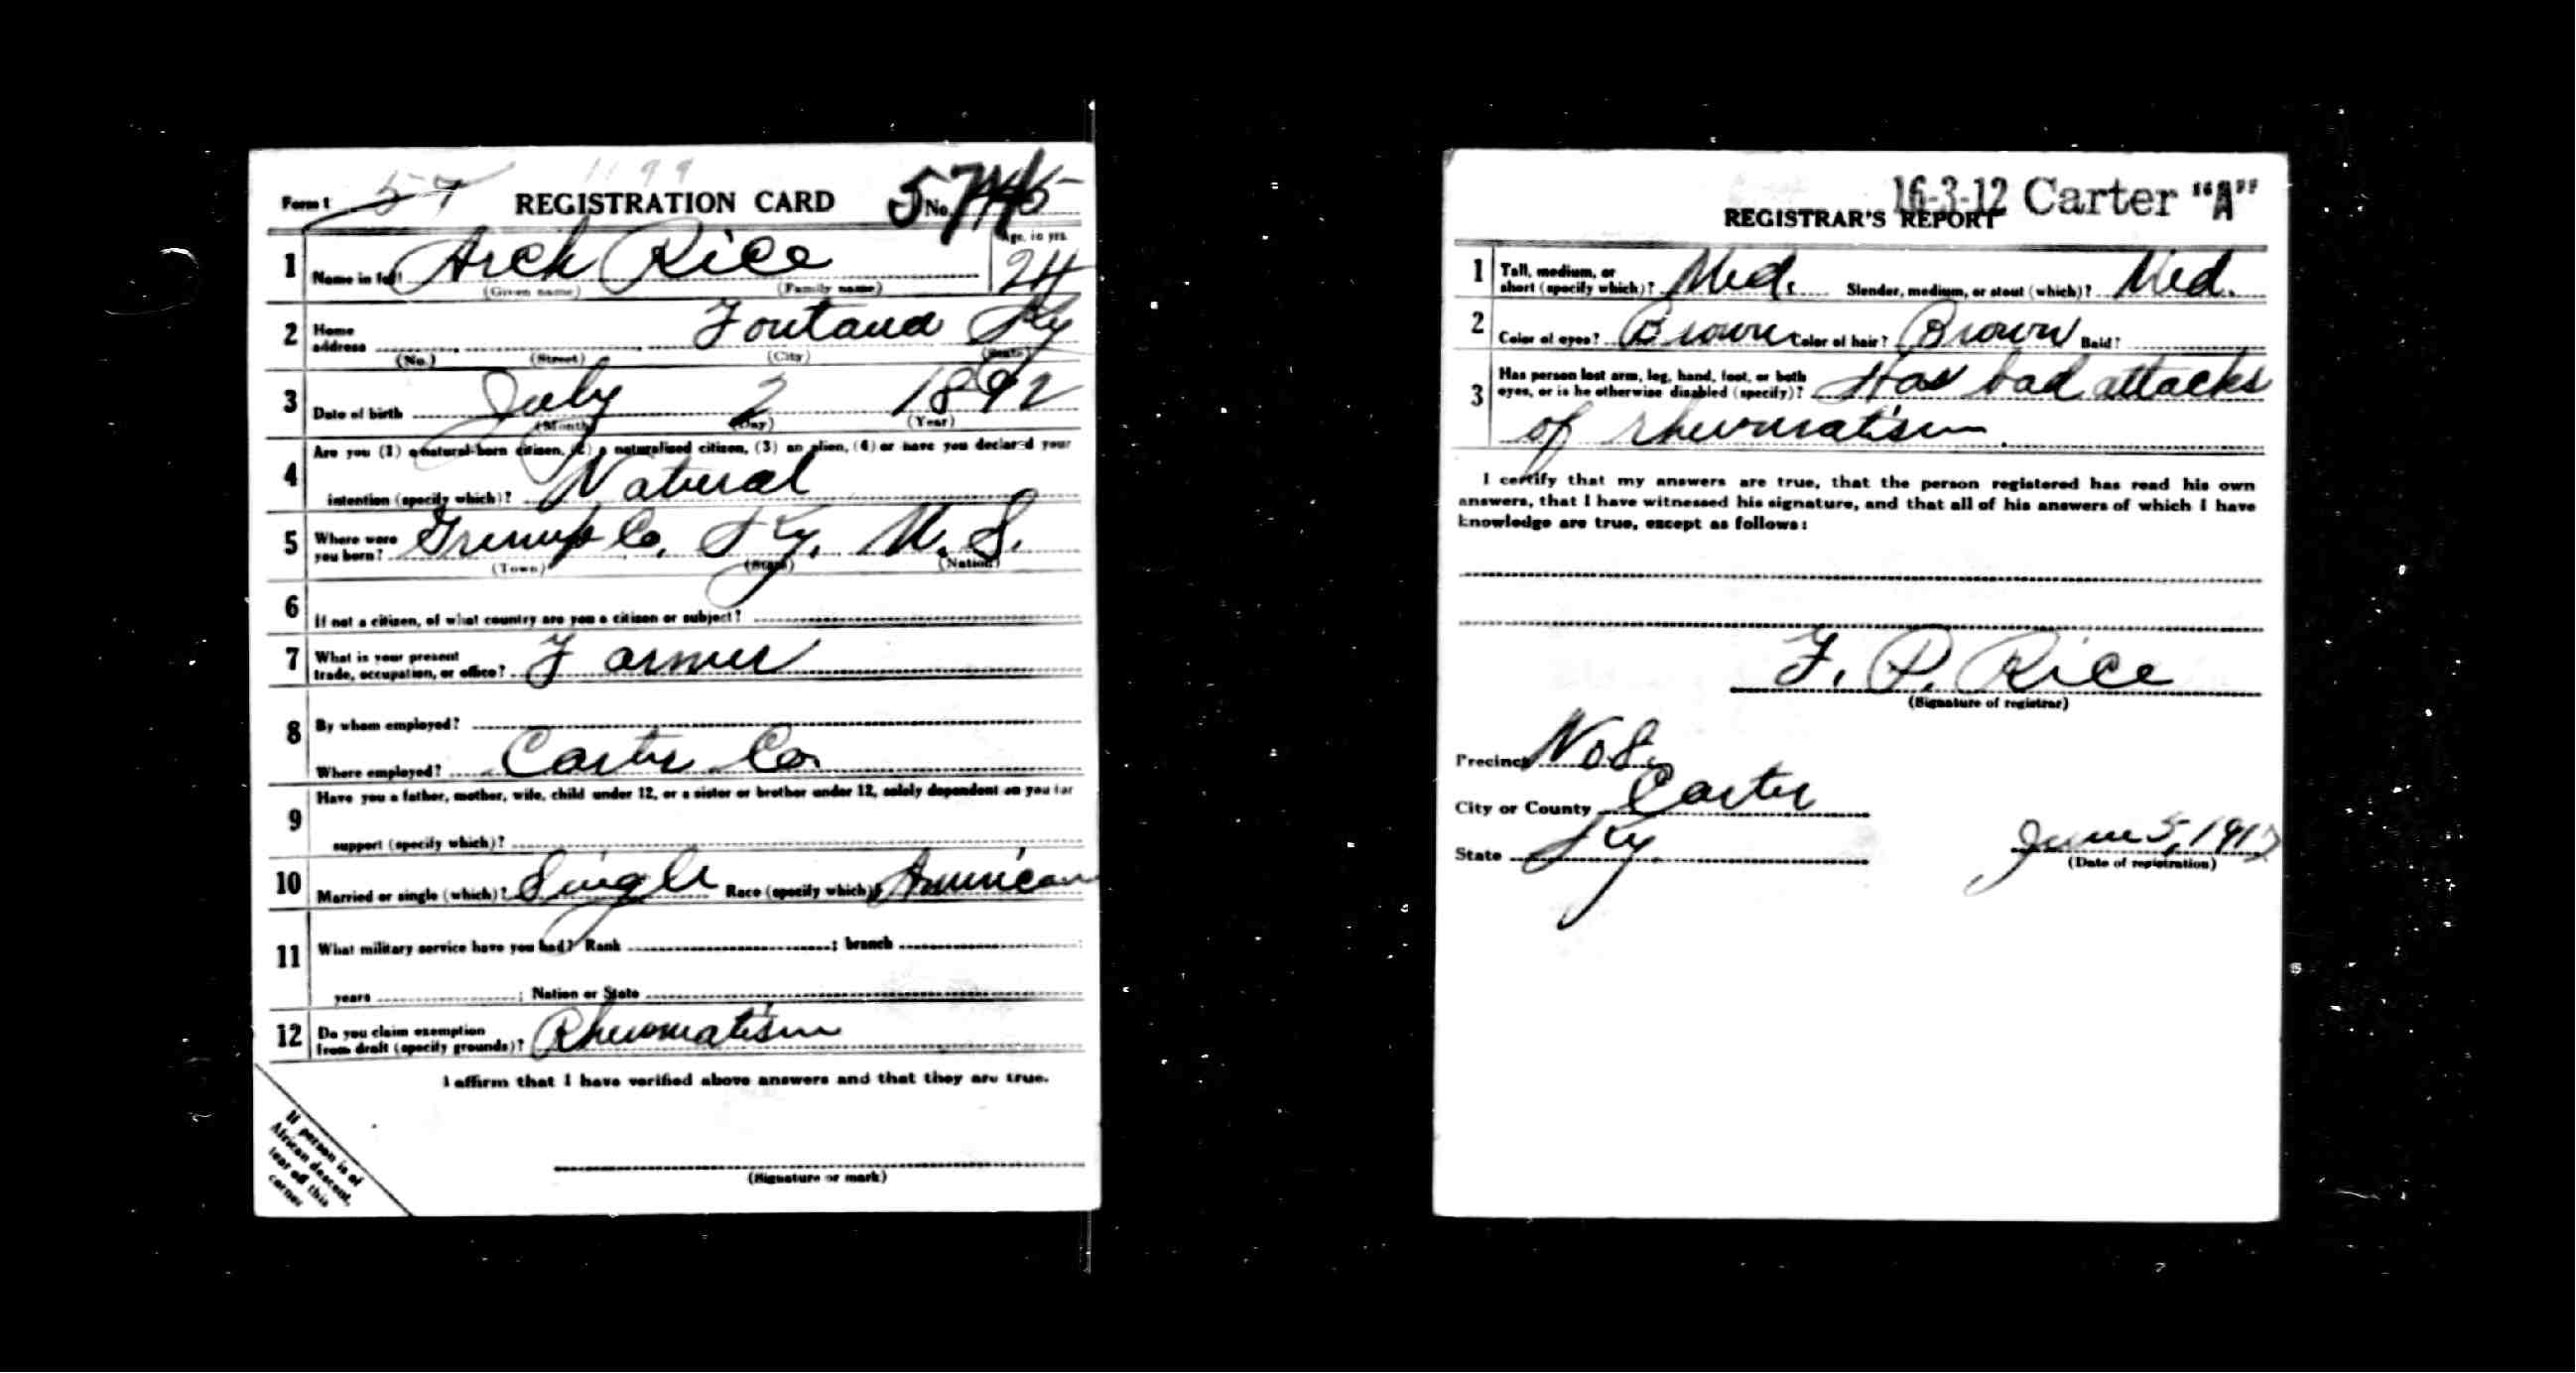 Form 1 57 1199 REGISTRATION CARD No. 45
1 Name in full Arch Rice Age, in yrs. 24
(Given name) (Family name)
2 Home address Fontana Ky
(No.) (Street) (City) (State)
3 Date of birth July 2 1892
(Month) (Day) (Year)
4 Are you (1) a natural-born citizen, (2) a naturalized citizen, (3) an alien, (4) or have you declared your
intention (specify which)? Natural
5 Where were you born? Greenup Co. Ky. U. S.
(Town) (State) (Nation)
6 If not a citizen, of what country are you a citizen or subject?
7 What is your present trade, occupation, or office? Farmer
8 By whom employed?
Where employed? Carter Co
9 Have you a father, mother, wife, child under 12, or a sister or brother under 12, solely dependent on you for
support (specify which)?
10 Married or single (which)? Single Race (specify which)? American
11 What military service have you had? Rank ; branch
years ; Nation or State
12 Do you claim exemption from draft (specify grounds)? Rheumatism
I affirm that I have verified above answers and that they are true.
(Signature or mark)
If person is of
African descent,
tear off this
corner
16-3-12 Carter "A"
REGISTRAR'S REPORT
1 Tall, medium, or short (specify which)? Med. Slender, medium, or stout (which)? Med.
2 Color of eyes? Brown Color of hair? Brown Bald?
3 Has person lost arm, leg, hand, foot, or both eyes, or is he otherwise disabled (specify)? Has bad attacks
of rheumatism
I certify that my answers are true, that the person registered has read his own
answers, that I have witnessed his signature, and that all of his answers of which I have
knowledge are true, except as follows:
F. P. Rice
(Signature of registrar)
Precinct No 8.
City or County Carter
State Ky. June 5, 1917
(Date of registration)